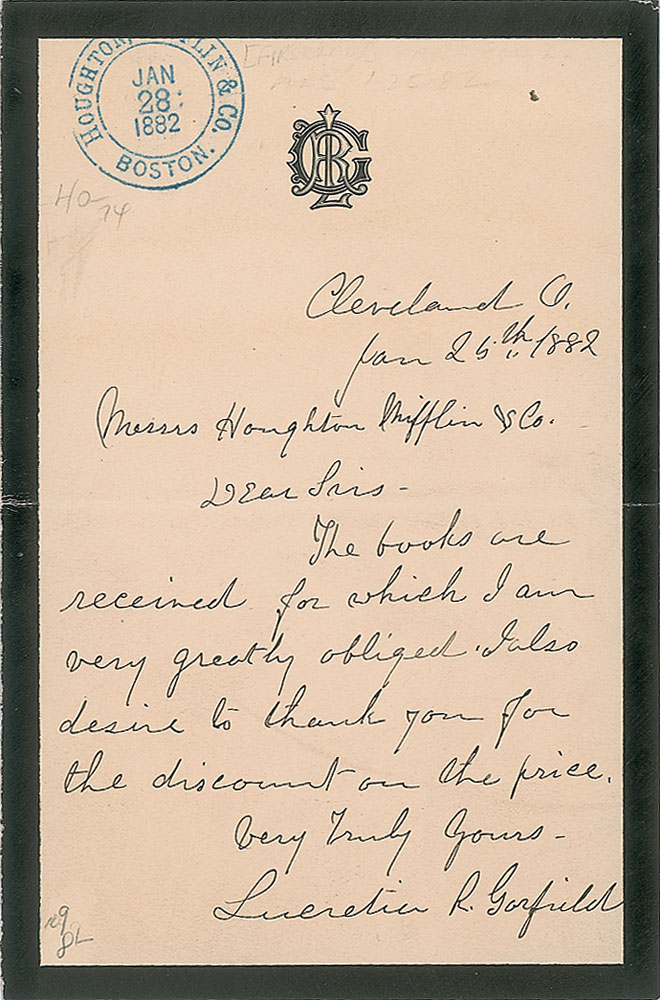 HOUGHTON, MIFFLIN & CO.
JAN
28
1882
BOSTON.
LRG
Cleveland O.
Jan 25th, 1882
Messrs Houghton Mifflin & Co.
Dear Sirs -
The books are
received for which I am
very greatly obliged. I also
desire to thank you for
the discount on the price.
Very Truly Yours -
Lucretia R. Garfield